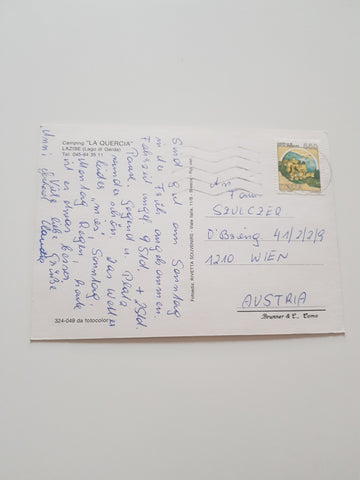 Camping "LA QUERCIA"
LAZISE (Lago di Garda)
Tel. 045-64 35 11
Sind gut am Sonntag
in der Früh angekommen.
Fahrzeit ingl. 9 Std. + 2 Std.
Pause. Gegend u. Platz
wunderschön, das Wetter
leider "mies", Sonntag
Montag Regen, heute
ist es etwas besser.
Viele liebe Grüße
324-049 da fotocolor
Fotoediz. RIVETTA SOUVENIRS
650
An
Fam
SZULCZER
O'Brieng. 41/2/2/9
1210 WIEN
AUSTRIA
Brunner & C., Como